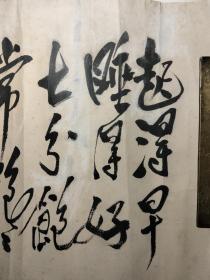 起得早
睡得好
七分飽
常跑跑